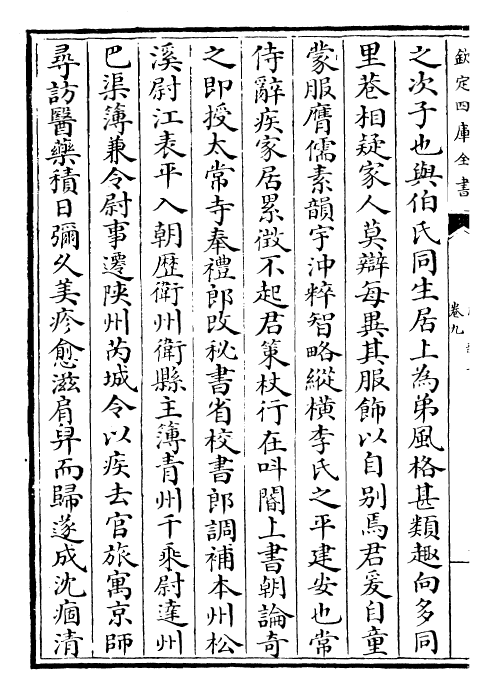 欽定四庫全書
卷九
之次子也與伯氏同生居上為弟風格甚類趣向多同
里巷相疑家人莫辯每異其服飾以自别焉君爰自童
蒙服膺儒素韻宇沖粹智略縱横李氏之平建安也常
侍辭疾家居累徴不起君策杖行在呌閽上書朝論奇
之即授太常寺奉禮郎改秘書省校書郎調補本州松
溪尉江表平入朝歴衛州衛縣主簿青州千乘尉達州
巴渠簿兼令尉事遷陜州芮城令以疾去官旅寓京師
尋訪醫藥積日彌久美疹愈滋肩舁而歸遂成沈痼清